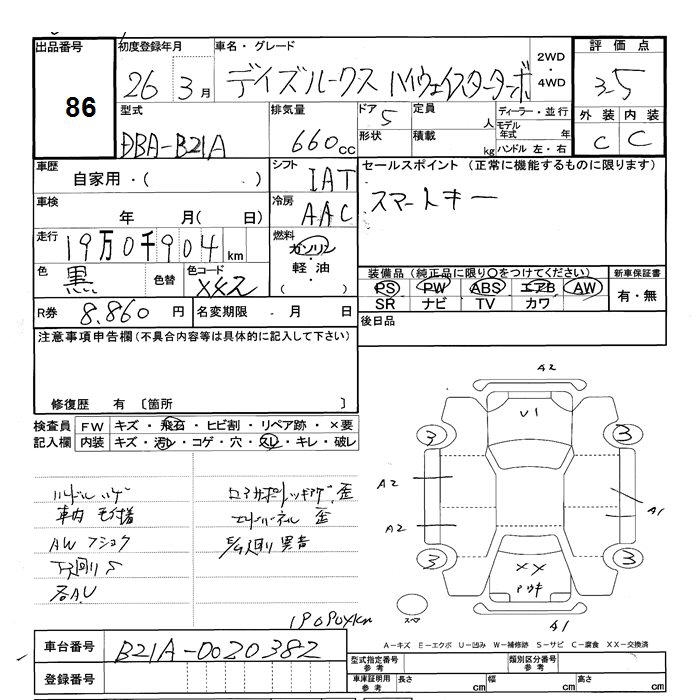 出品番号 初度登録年月 車名・グレード 2WD・4WD 評価点
86 26 3月 デイズルークス ハイウェイスターターボ 3.5
型式 排気量 ドア 5 定員 人 ディーラー・並行 外装 内装
DBA-B21A 660cc 形状 積載 kg モデル年式 年 ハンドル 左・右 C C
車歴 自家用・( ) シフト IAT セールスポイント (正常に機能するものに限ります)
車検 年 月( 日) 冷房 AAC スマートキー
走行 19万0千904km 燃料 ガソリン・軽油・( )
色 黒 色替 色コード 装備品 (純正品に限り〇をつけてください) 新車保証書
PS PW ABS エアB AW 有・無
SR ナビ TV カワ
R券 8,860円 名変期限 ・月 日 後日品
注意事項申告欄(不具合内容等は具体的に記入して下さい)
修復歴 有 〔箇所 〕
検査員 FW キズ・飛石・ヒビ割・リペア跡・×要
記入欄 内装 キズ・汚レ・コゲ・穴・スレ・キレ・破レ
A2
U1
3 3
A2 A1
A2
3 3
XX
スペア
A1
ハンドルハゲ
AW
下廻りS
各AU
歪
歪
E/G廻り異音
190904km
A-キズ E-エクボ U-凹み W-補修跡 S-サビ C-腐食 XX-交換済
車台番号 B21A-0020382 型式指定番号参考 類別区分番号参考
登録番号 車庫証明用参考 長さ cm 幅 cm 高さ cm